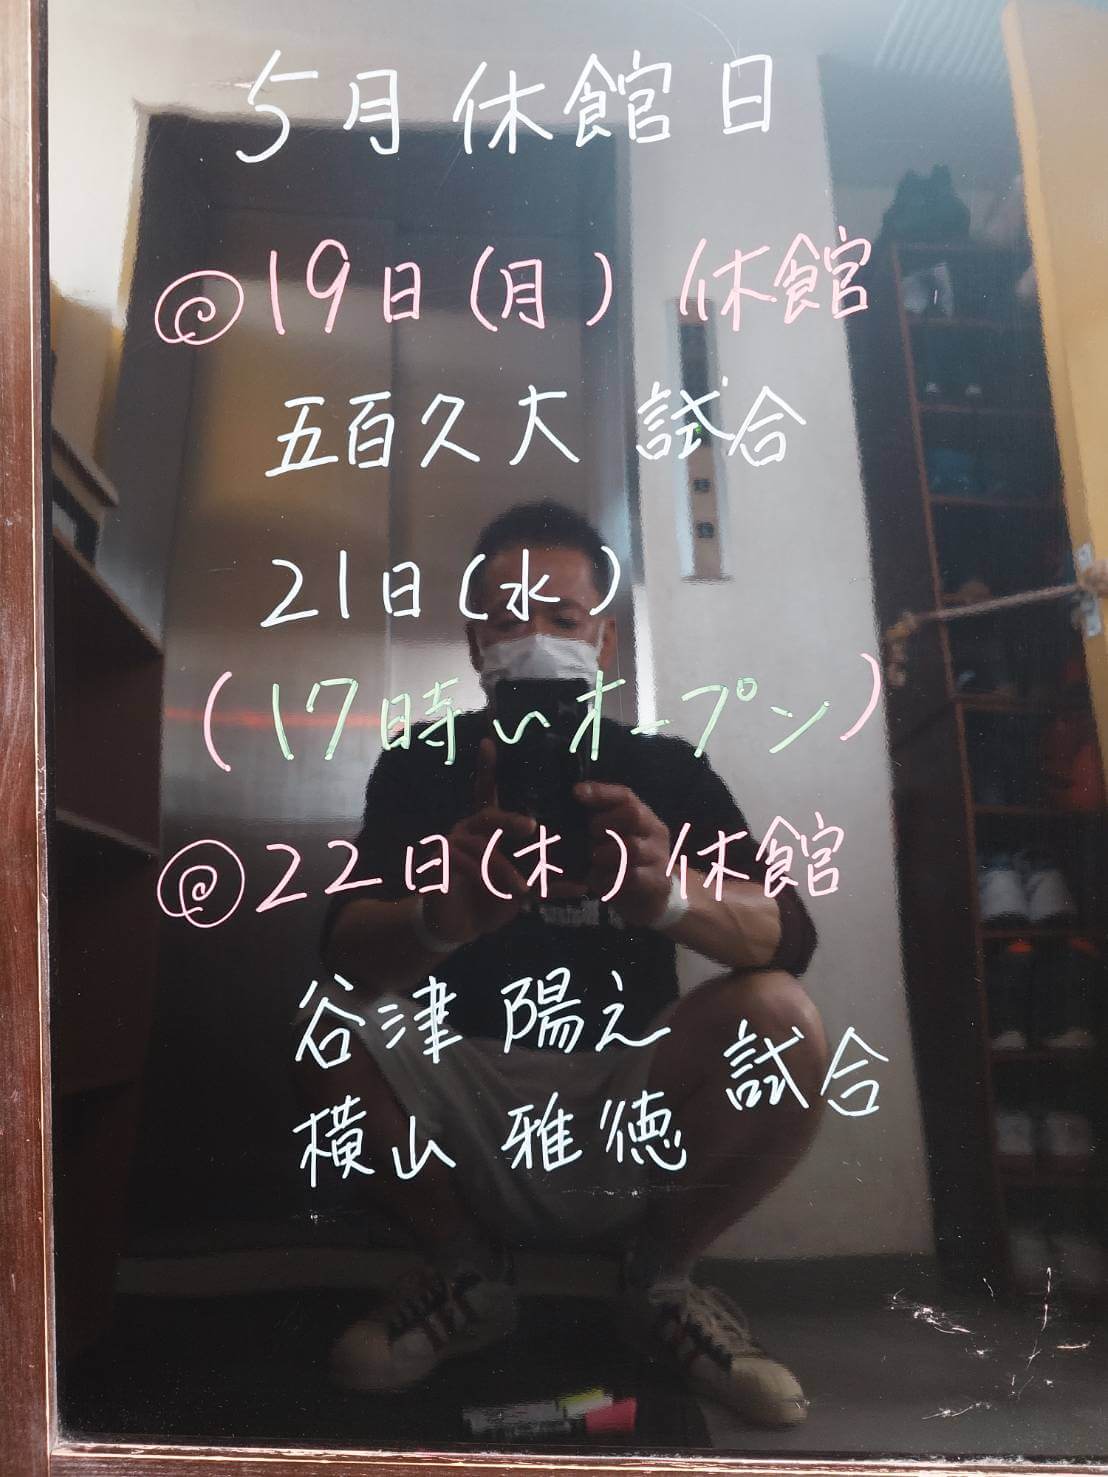 5月休館日
@19日(月) 休館
五百久大 試合
21日(水)
(17時〜オープン)
@22日(木)休館
谷津 陽之
試合
横山 雅徳